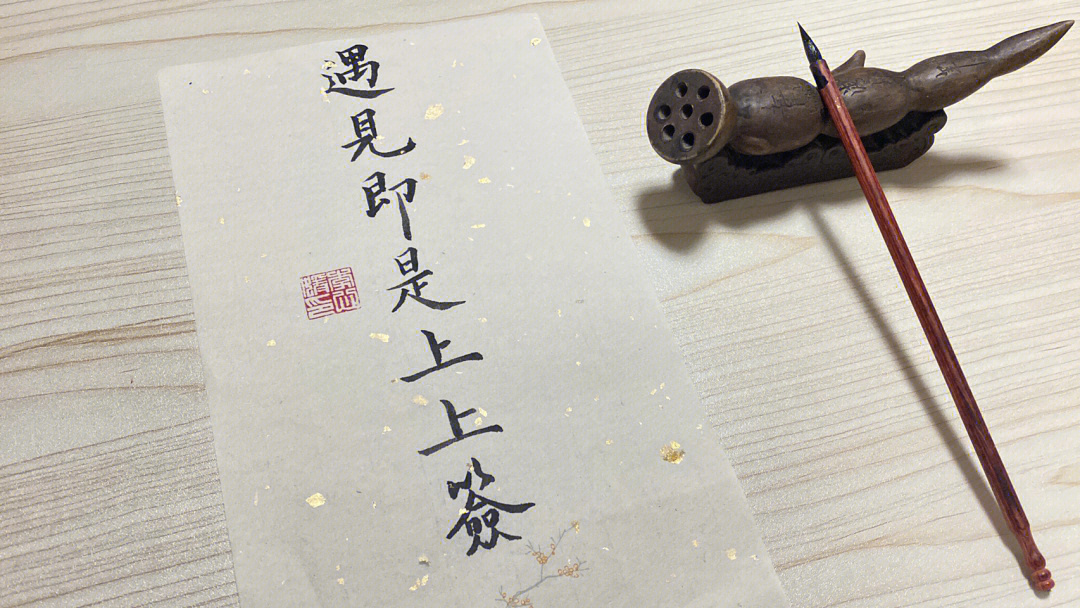 遇見即是上上簽